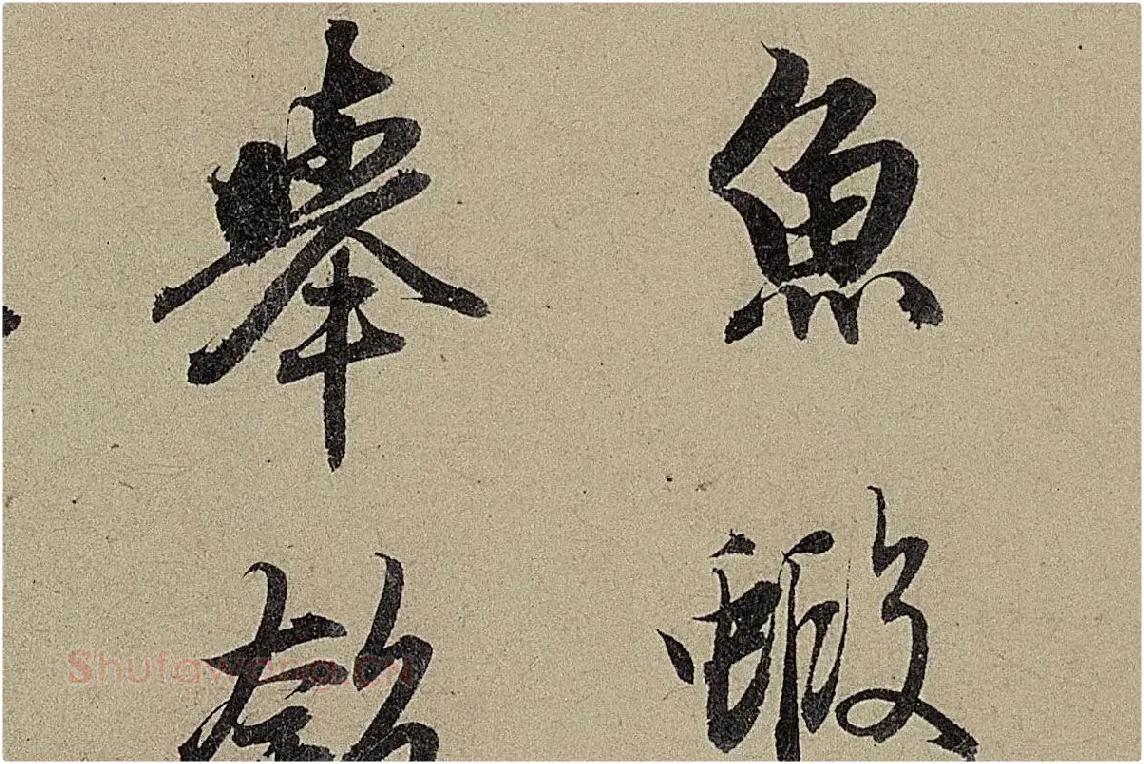 魚蝦
舉匏
Shufawang.cn